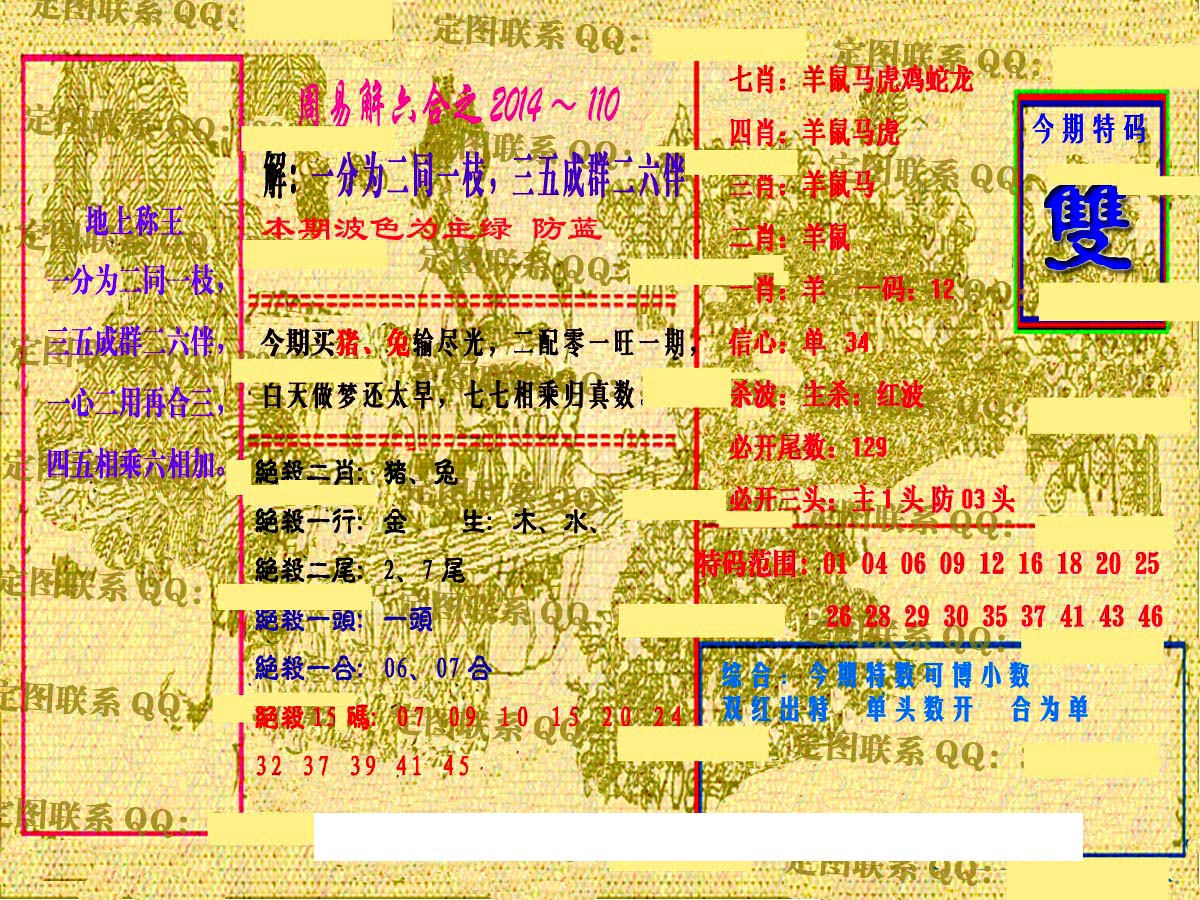 定图联系 QQ:
定图联系 QQ:
定图联系 QQ:
周易解六合之 2014 ~ 110
解: 一分为二同一枝, 三五成群二六伴
本期波色为主绿 防蓝
地上称王
一分为二同一枝,
三五成群二六伴,
一心二用再合三,
四五相乘六相加。
今期买猪、兔输尽光, 二配零一旺一期,
白天做梦还太早, 七七相乘归真数.
絕殺二肖: 猪、兔
絕殺一行: 金 生: 木、水、
絕殺二尾: 2、7 尾
絕殺一頭: 一頭
絕殺一合: 06、07 合
絕殺 15 碼: 07 09 10 15 20 24
32 37 39 41 45
七肖: 羊鼠马虎鸡蛇龙
四肖: 羊鼠马虎
三肖: 羊鼠马
二肖: 羊鼠
一肖: 羊 一码: 12
信心: 单 34
杀波: 主杀: 红波
必开尾数: 129
必开三头: 主 1 头 防 03 头
今期特码
雙
特码范围: 01 04 06 09 12 16 18 20 25
26 28 29 30 35 37 41 43 46
综合: 今期特数可博小数
双红出特 单头数开 合为单
定图联系 QQ:
定图联系 QQ:
定图联系 QQ:
定图联系 QQ:
定图联系 QQ: